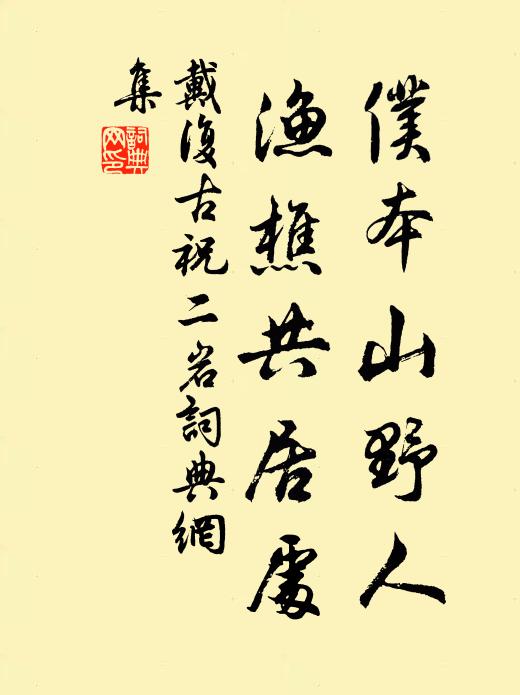 僕本山野人
漁樵共居處
戴復古祝二岩詞典網
集
詞典
網印